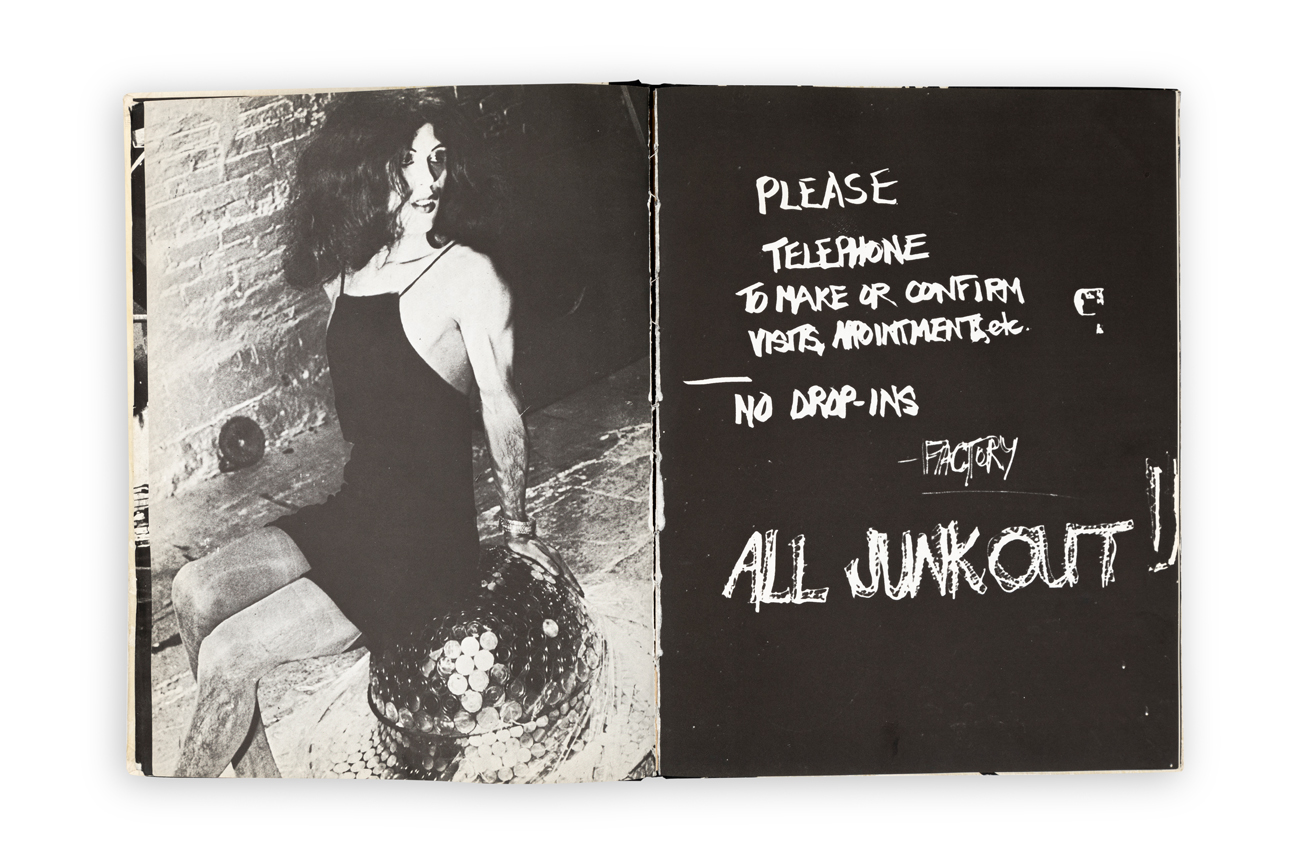 PLEASE
TELEPHONE
TO MAKE OR CONFIRM
VISITS, APOINTMENTS, etc.
NO DROP-INS
—FACTORY
ALL JUNK OUT !!